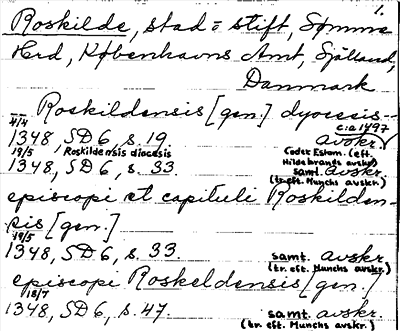 1.
Roskilde, stad = stift, Sömme
Hrd, Københavns Amt, Själland,
Danmark
Roskildensis [gen.] dyocesis —
4/4 c:a 1497
1348, SD6, s. 19. avskr.
19/5 Roskildensis diocesis Codex Eslom. (eft.
Hildebrands avskr)
1348, SD6, s. 33. samt. avskr.
(tr. eft. Munchs avskr.)
episcopi et capituli Roskilden-
sis [gen.]
19/5
1348, SD6, s. 33. samt. avskr.
(tr. eft. Munchs avskr.)
episcopi Roskeldensis [gen.]
18/7
1348, SD6, s. 47. samt. avskr.
(tr. eft. Munchs avskr.)